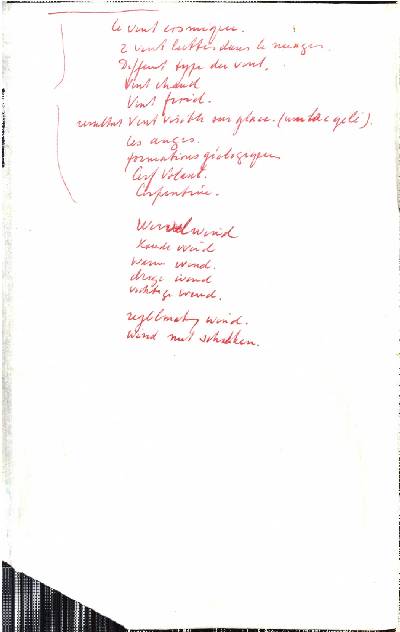 le vent cosmique.
2 vent luttes dans le nuages.
Different type du vent.
Vent chaud
Vent froid.
resultat Vent visible sur glace. (un lac gelé).
les anges.
formations géologiques
Cerf Volant.
Serpentine.
Wervelwind
Koude wind
warme wind.
droge wind
vochtige wind.
regelmatig wind.
wind met schokken.